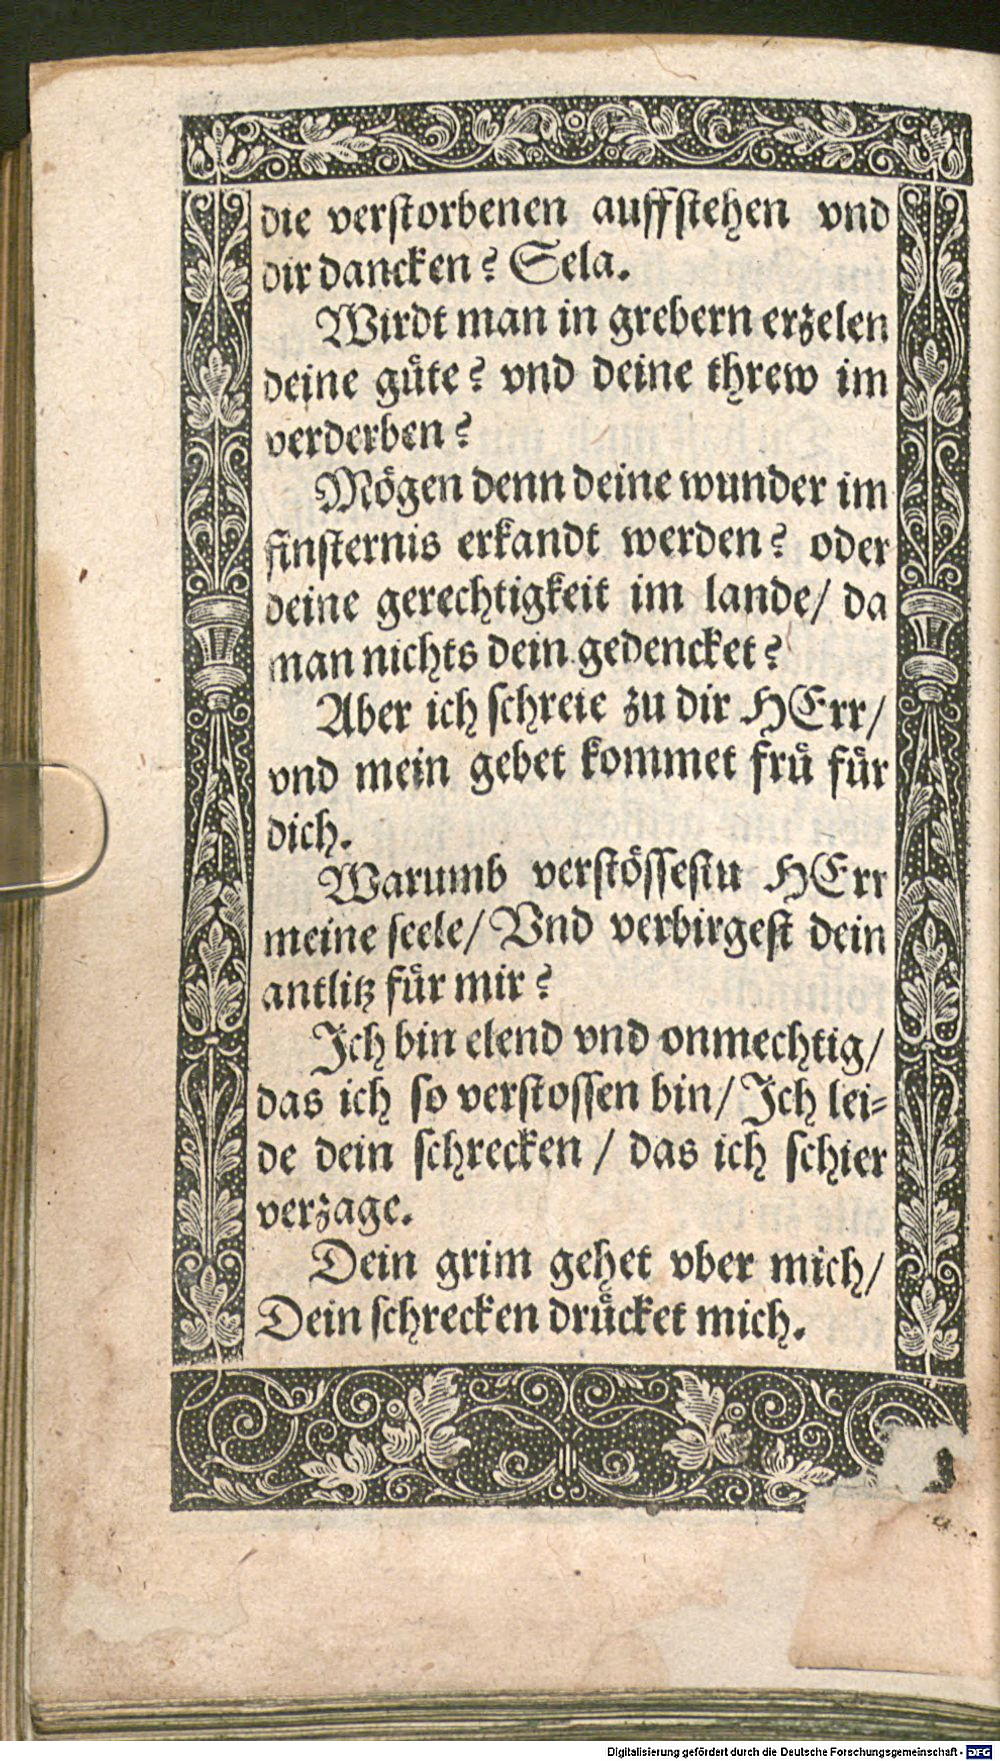 die verſtorbenen auffſtehen vnd
dir dancken? Sela.
Wirdt man in grebern erzelen
deine guͤte? vnd deine threw im
verderben?
Moͤgen denn deine wunder im
finſternis erkandt werden? oder
deine gerechtigkeit im lande/ da
man nichts dein gedencket?
Aber ich ſchreie zu dir HErr/
vnd mein gebet kommet fruͤ fuͤr
dich.
Warumb verſtoͤſſeſtu HErr
meine ſeele/ Vnd verbirgeſt dein
antlitz fuͤr mir?
Ich bin elend vnd onmechtig/
das ich ſo verſtoſſen bin/ Ich lei⸗
de dein ſchrecken / das ich ſchier
verzage.
Dein grim gehet vber mich/
Dein ſchrecken druͤcket mich.
Digitalisierung gefördert durch die Deutsche Forschungsgemeinschaft - DFG